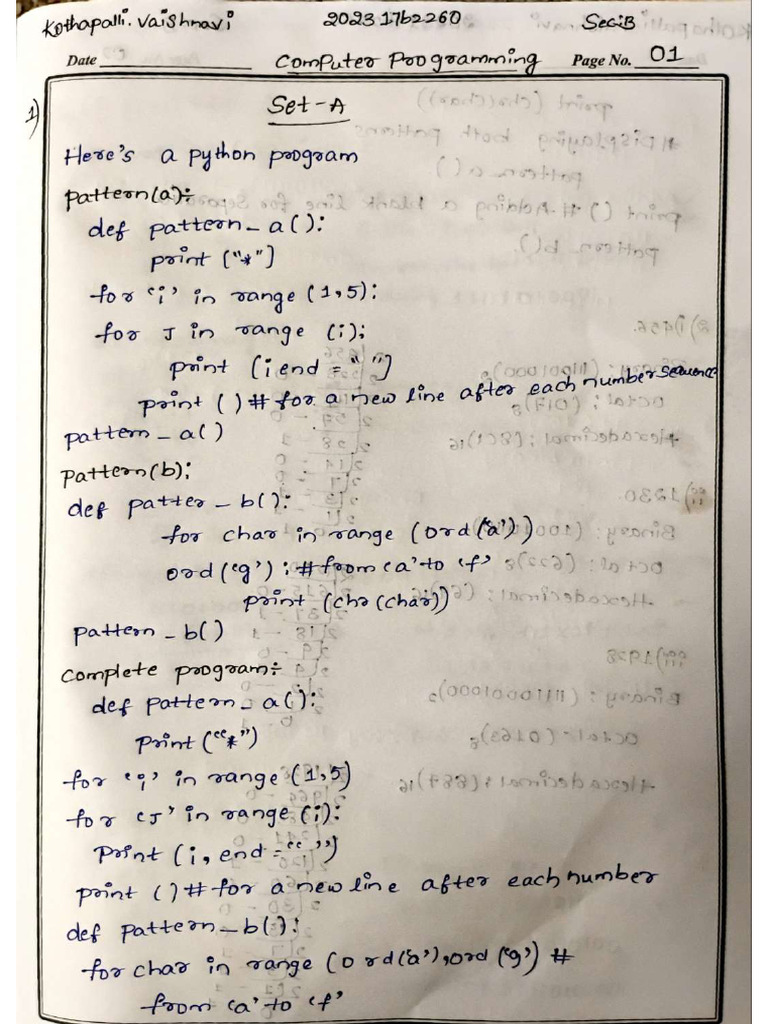 Kothapalli. Vaishnavi 2023 17b2260 Sec:B
Date Computer Programming Page No. 01
Set-A
1)
Here's a python program
pattern(a):
def pattern_a():
print ("*"]
for 'i' in range (1,5):
for J in range (i);
print (i end = " "]
print () # for a new line after each number sequence
pattern_a()
pattern(b);
def patter_b():
for char in range (ord('a'))
ord('g'): #from 'a' to 'f'
print (chr(char))
pattern_b()
Complete program:
def pattern_a():
print ("*")
for 'i' in range (1,5)
for 'J' in range (i):
print (i, end = " ")
print () # for a new line after each number
def pattern_b():
for char in range (ord('a'), ord('g') #
from 'a' to 'f'